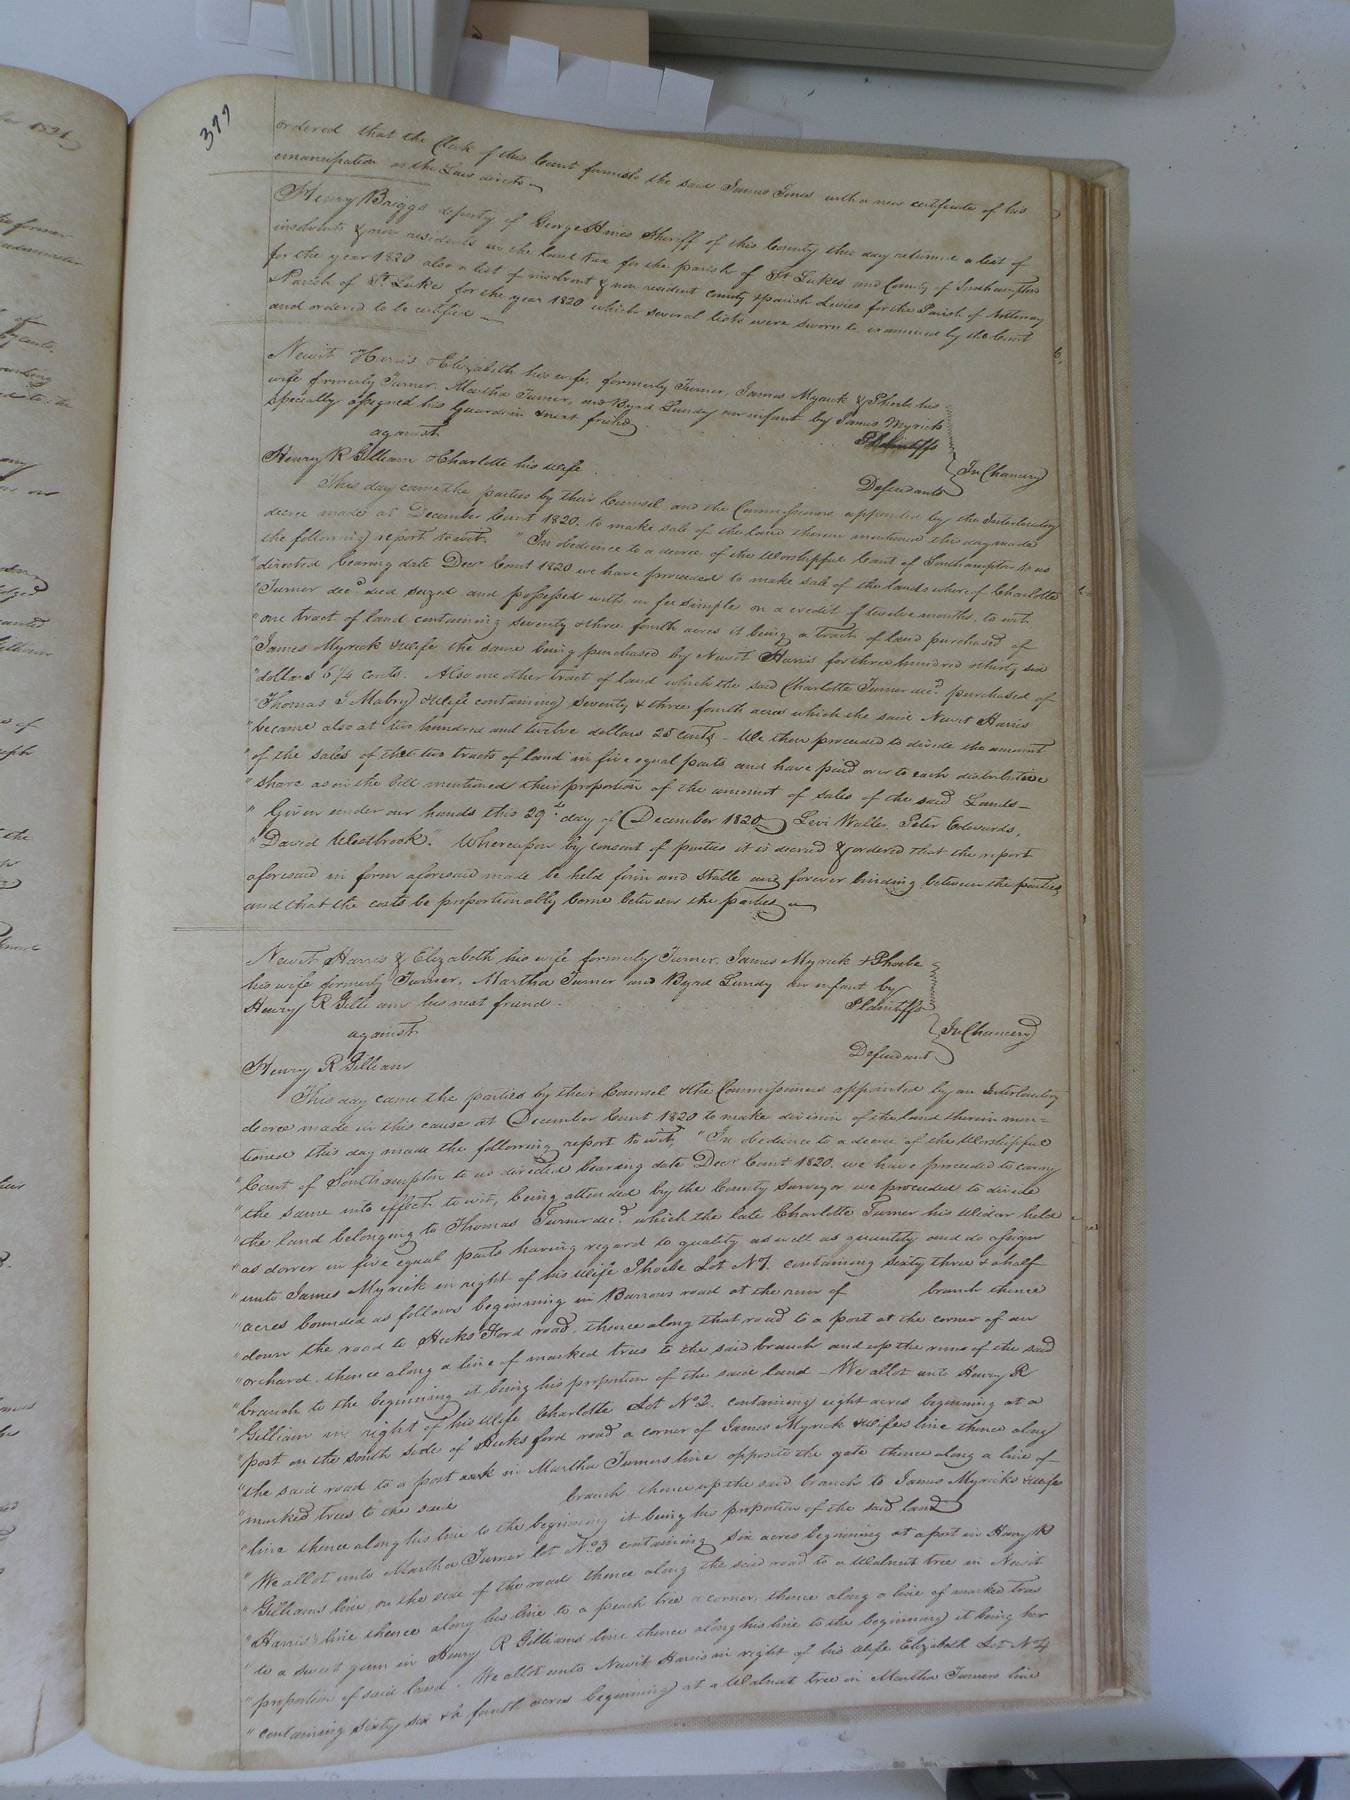 399
ordered that the Clerk of this Court furnish the said James Jones with a new certificate of his
emancipation as the Law directs
Henry Briggs deputy of George Hines Sheriff of this County this day returned a list of
insolvents & non residents in the land tax for the parish of St Lukes and County of Southampton
for the year 1820 also a list of insolvent & non resident County & parish Levies for the Parish of Nottoway
Parish of St Luke for the year 1820 which several lists were sworn to examined by the Court
and ordered to be certified
Newit Harris & Elizabeth his wife, formerly Turner, James Myrick & Phoebe his
wife formerly Turner, Martha Turner, and Byrd Lundy an infant by James Myrick
specially assigned his Guardian & next friend
Plaintiffs
against
In Chancery
Henry R Gilliam & Charlotte his wife
Defendants
This day came the parties by their Counsel and the Commissioners appointed by the Interlocutory
decree made at December Court 1820, to make sale of the land therein mentioned this day made
the following report to wit, "In obedience to a decree of the Worshipful Court of Southampton to us
"directed bearing date Decr Court 1820 we have proceeded to make sale of the lands whereof Charlotte
"Turner decd died seized and possessed with in fee simple on a credit of twelve months, to wit
"one tract of land containing seventy & three fourth acres it being a tract of land purchased of
"James Myrick & wife the same being purchased by Newit Harris for three hundred & thirty six
"dollars 6 1/4 cents. Also one other tract of land which the said Charlotte Turner decd purchased of
"Thomas I Mabry & wife containing seventy & three fourth acres which the said Newit Harris
"became also at two hundred and twelve dollars 25 cents - We then proceeded to divide the amount
"of the sales of the two tracts of land in five equal parts and have paid over to each distributive
"share as in the bill mentioned their proportion of the amount of sales of the said Lands-
"Given under our hands this 29th day of December 1820 Levi Waller, Peter Edwards,
"David Westbrook." Whereupon by consent of parties it is decreed & ordered that the report
aforesaid in form aforesaid made be held firm and stable and forever binding between the parties
and that the costs be proportionally borne between the parties
Newit Harris & Elizabeth his wife formerly Turner, James Myrick & Phoebe
his wife formerly Turner, Martha Turner and Byrd Lundy an infant by
Henry R Gilliam his next friend
Plaintiffs
against
In Chancery
Defendant
Henry R Gilliam
This day came the parties by their Counsel & the Commissioners appointed by an Interlocutory
decree made in this cause at December Court 1820 to make division of the land therein men=
tioned this day made the following report to wit, "In obedience to a decree of the Worshipful
"Court of Southampton to us directed bearing date Decr Court 1820. we have proceeded to carry
"the same into effect, to wit, being attended by the County surveyor we proceeded to divide
"the land belonging to Thomas Turner decd which the late Charlotte Turner his widow held
"as dower in five equal parts having regard to quality as well as quantity and do assign
"unto James Myrick in right of his wife Phoebe Lot No 1. containing sixty three & a half
"acres bounded as follows beginning in Barrows road at the run of branch thence
"down the road to Hicks' Ford road, thence along that road to a post at the corner of an
"orchard, thence along a line of marked trees to the said branch and up the runs of the said
"branch to the beginning it being his proportion of the said land - We allot unto Henry R
"Gilliam in right of his wife Charlotte Lot No 2. containing eight acres beginning at a
"post on the south side of Hicks ford road a corner of James Myrick & wifes line thence along
"the said road to a post in Martha Turners line opposite the gate thence along a line of
"marked trees to the said branch thence up the said branch to James Myricks & wifes
"line thence along his line to the beginning it being his proportion of the said land
"We allot unto Martha Turner lot No 3 containing six acres beginning at a post in Henry R
"Gilliams line, on the side of the road thence along the said road to a Walnut tree in Newit
"Harris' line thence along his line to a peach tree a corner, thence along a line of marked trees
"to a sweet gum in Henry R Gilliams line thence along his line to the beginning it being her
"proportion of said land. We allot unto Newit Harris in right of his wife Elizabeth Lot No 4
"containing sixty six & a fourth acres beginning at a Walnut tree in Martha Turners line